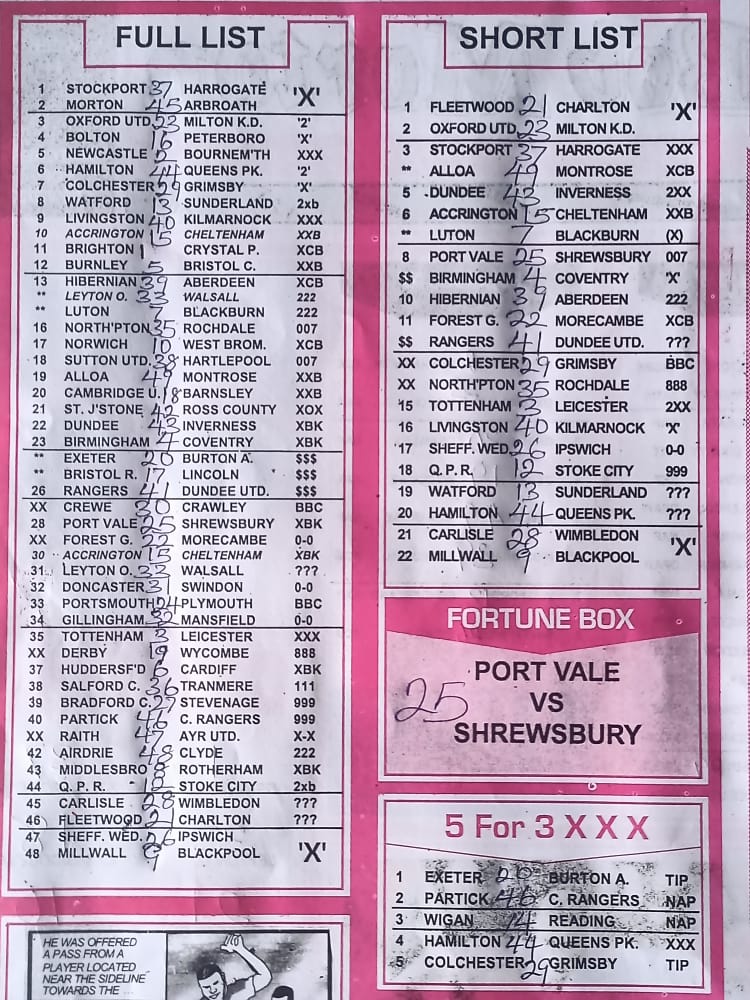 FULL LIST
1 STOCKPORT 37 HARROGATE 'X'
2 MORTON 45 ARBROATH
3 OXFORD UTD. 23 MILTON K.D. '2'
4 BOLTON 16 PETERBORO 'X'
5 NEWCASTLE 2 BOURNEM'TH XXX
6 HAMILTON 44 QUEENS PK. '2'
7 COLCHESTER 29 GRIMSBY 'X'
8 WATFORD 13 SUNDERLAND 2xb
9 LIVINGSTON 40 KILMARNOCK XXX
10 ACCRINGTON 15 CHELTENHAM XXB
11 BRIGHTON 1 CRYSTAL P. XCB
12 BURNLEY 5 BRISTOL C. XXB
13 HIBERNIAN 39 ABERDEEN XCB
** LEYTON O. 33 WALSALL 222
** LUTON 7 BLACKBURN 222
16 NORTH'PTON 35 ROCHDALE 007
17 NORWICH 10 WEST BROM. XCB
18 SUTTON UTD. 38 HARTLEPOOL 007
19 ALLOA 49 MONTROSE XXB
20 CAMBRIDGE U. 18 BARNSLEY XXB
21 ST. J'STONE 42 ROSS COUNTY XOX
22 DUNDEE 43 INVERNESS XBK
23 BIRMINGHAM 4 COVENTRY XBK
** EXETER 20 BURTON A. $$$
** BRISTOL R. 17 LINCOLN $$$
26 RANGERS 41 DUNDEE UTD. $$$
XX CREWE 30 CRAWLEY BBC
28 PORT VALE 25 SHREWSBURY XBK
XX FOREST G. 22 MORECAMBE 0-0
30 ACCRINGTON 15 CHELTENHAM XBK
31 LEYTON O. 33 WALSALL ???
32 DONCASTER 31 SWINDON 0-0
33 PORTSMOUTH 24 PLYMOUTH BBC
34 GILLINGHAM 32 MANSFIELD 0-0
35 TOTTENHAM 3 LEICESTER XXX
XX DERBY 19 WYCOMBE 888
37 HUDDERSF'D 6 CARDIFF XBK
38 SALFORD C. 36 TRANMERE 111
39 BRADFORD C. 27 STEVENAGE 999
40 PARTICK 46 C. RANGERS 999
XX RAITH 47 AYR UTD. X-X
42 AIRDRIE 48 CLYDE 222
43 MIDDLESBRO 8 ROTHERHAM XBK
44 Q. P. R. 12 STOKE CITY 2xb
45 CARLISLE 28 WIMBLEDON ???
46 FLEETWOOD 21 CHARLTON ???
47 SHEFF. WED. 26 IPSWICH
48 MILLWALL 9 BLACKPOOL 'X'
HE WAS OFFERED
A PASS FROM A
PLAYER LOCATED
NEAR THE SIDELINE
TOWARDS THE ...
SHORT LIST
1 FLEETWOOD 21 CHARLTON 'X'
2 OXFORD UTD. 23 MILTON K.D.
3 STOCKPORT 37 HARROGATE XXX
** ALLOA 49 MONTROSE XCB
5 DUNDEE 43 INVERNESS 2XX
6 ACCRINGTON 15 CHELTENHAM XXB
** LUTON 7 BLACKBURN (X)
8 PORT VALE 25 SHREWSBURY 007
$$ BIRMINGHAM 4 COVENTRY 'X'
10 HIBERNIAN 39 ABERDEEN 222
11 FOREST G. 22 MORECAMBE XCB
$$ RANGERS 41 DUNDEE UTD. ???
XX COLCHESTER 29 GRIMSBY BBC
XX NORTH'PTON 35 ROCHDALE 888
15 TOTTENHAM 3 LEICESTER 2XX
16 LIVINGSTON 40 KILMARNOCK 'X'
17 SHEFF. WED. 26 IPSWICH 0-0
18 Q. P. R. 12 STOKE CITY 999
19 WATFORD 13 SUNDERLAND ???
20 HAMILTON 44 QUEENS PK. ???
21 CARLISLE 28 WIMBLEDON 'X'
22 MILLWALL 9 BLACKPOOL
FORTUNE BOX
PORT VALE
25 VS
SHREWSBURY
5 For 3 X X X
1 EXETER 20 BURTON A. TIP
2 PARTICK 46 C. RANGERS NAP
3 WIGAN 14 READING NAP
4 HAMILTON 44 QUEENS PK. XXX
5 COLCHESTER 29 GRIMSBY TIP